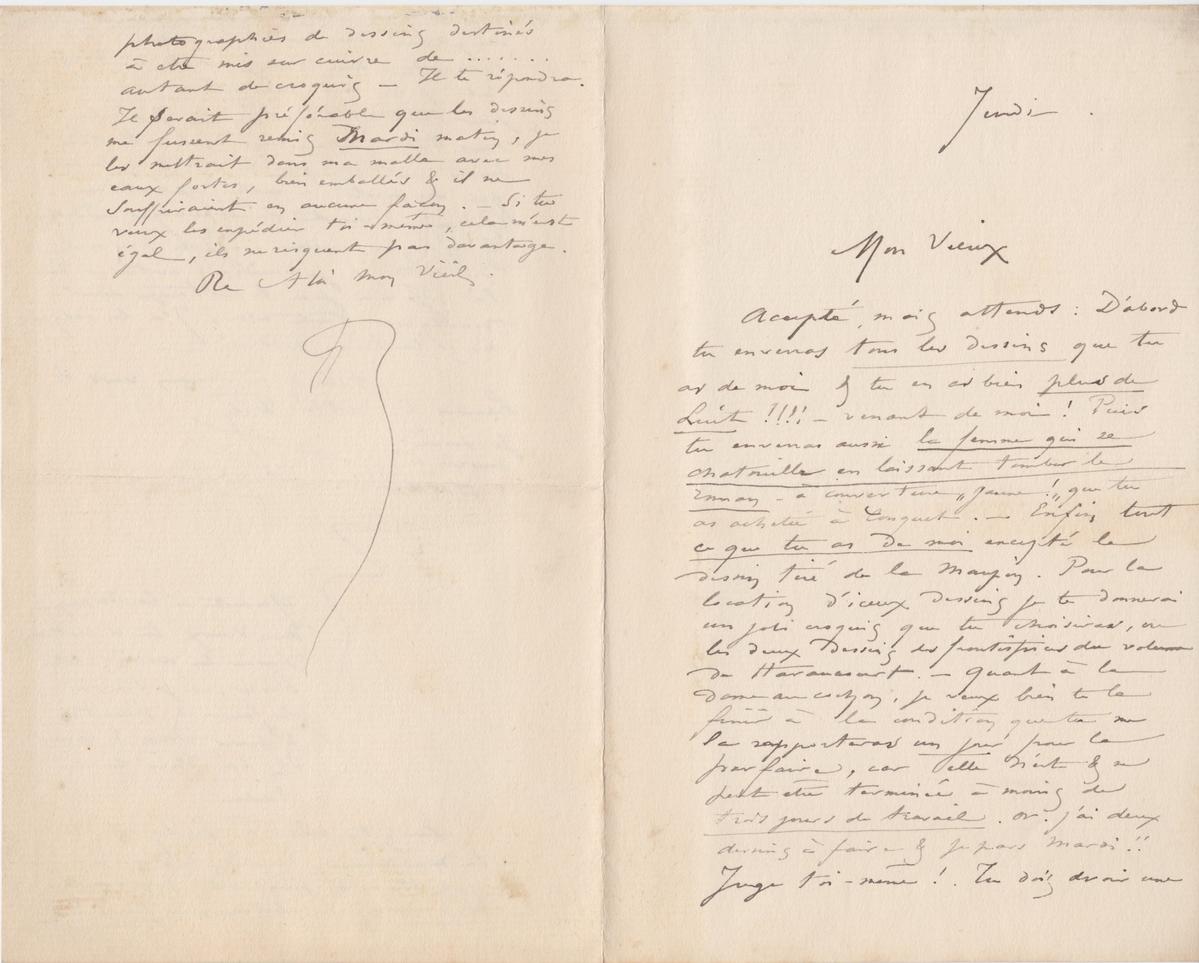 Jeudi.
Mon Vieux
Accepté, mais attends : D'abord
tu enverras tous les dessins que tu
as de moi & tu en as bien plus de
huit !!!! – venant de moi ! Puis
tu enverras aussi la femme qui se
chatouille en laissant tomber le
roman – à couverture „ jaune ! „ que tu
as acheté à Conquet. — Enfin tout
ce que tu as De moi excepté le
dessin tiré de la Maupin. Pour la
location d'iceux Dessins je te donnerai
un joli croquis que tu choisiras, ou
les deux Dessins des frontispices du volume
de Haraucourt. — Quant à la
Dame au cochon, je veux bien te la
finir à la condition que tu me
la rapporteras un jour pour la
parfaire, car elle n'est & ne
peut être terminée à moins de
trois jours de travail. Or : j'ai deux
dessins à faire & je pars Mardi !!
Juge toi-même !. Tu dois avoir une
photographies de dessins destinés
à être mis sur cuivre de .......
autant de croquis — Il te répondra.
Il serait préférable que les dessins
me fussent remis Mardi matin, je
les mettrait dans ma malle avec mes
eaux fortes, bien emballés & il ne
souffriraient en aucune façon. — Si tu
veux les expédier toi-même, cela m'est
égal, ils ne risquent pas davantage.
mon Vieil.